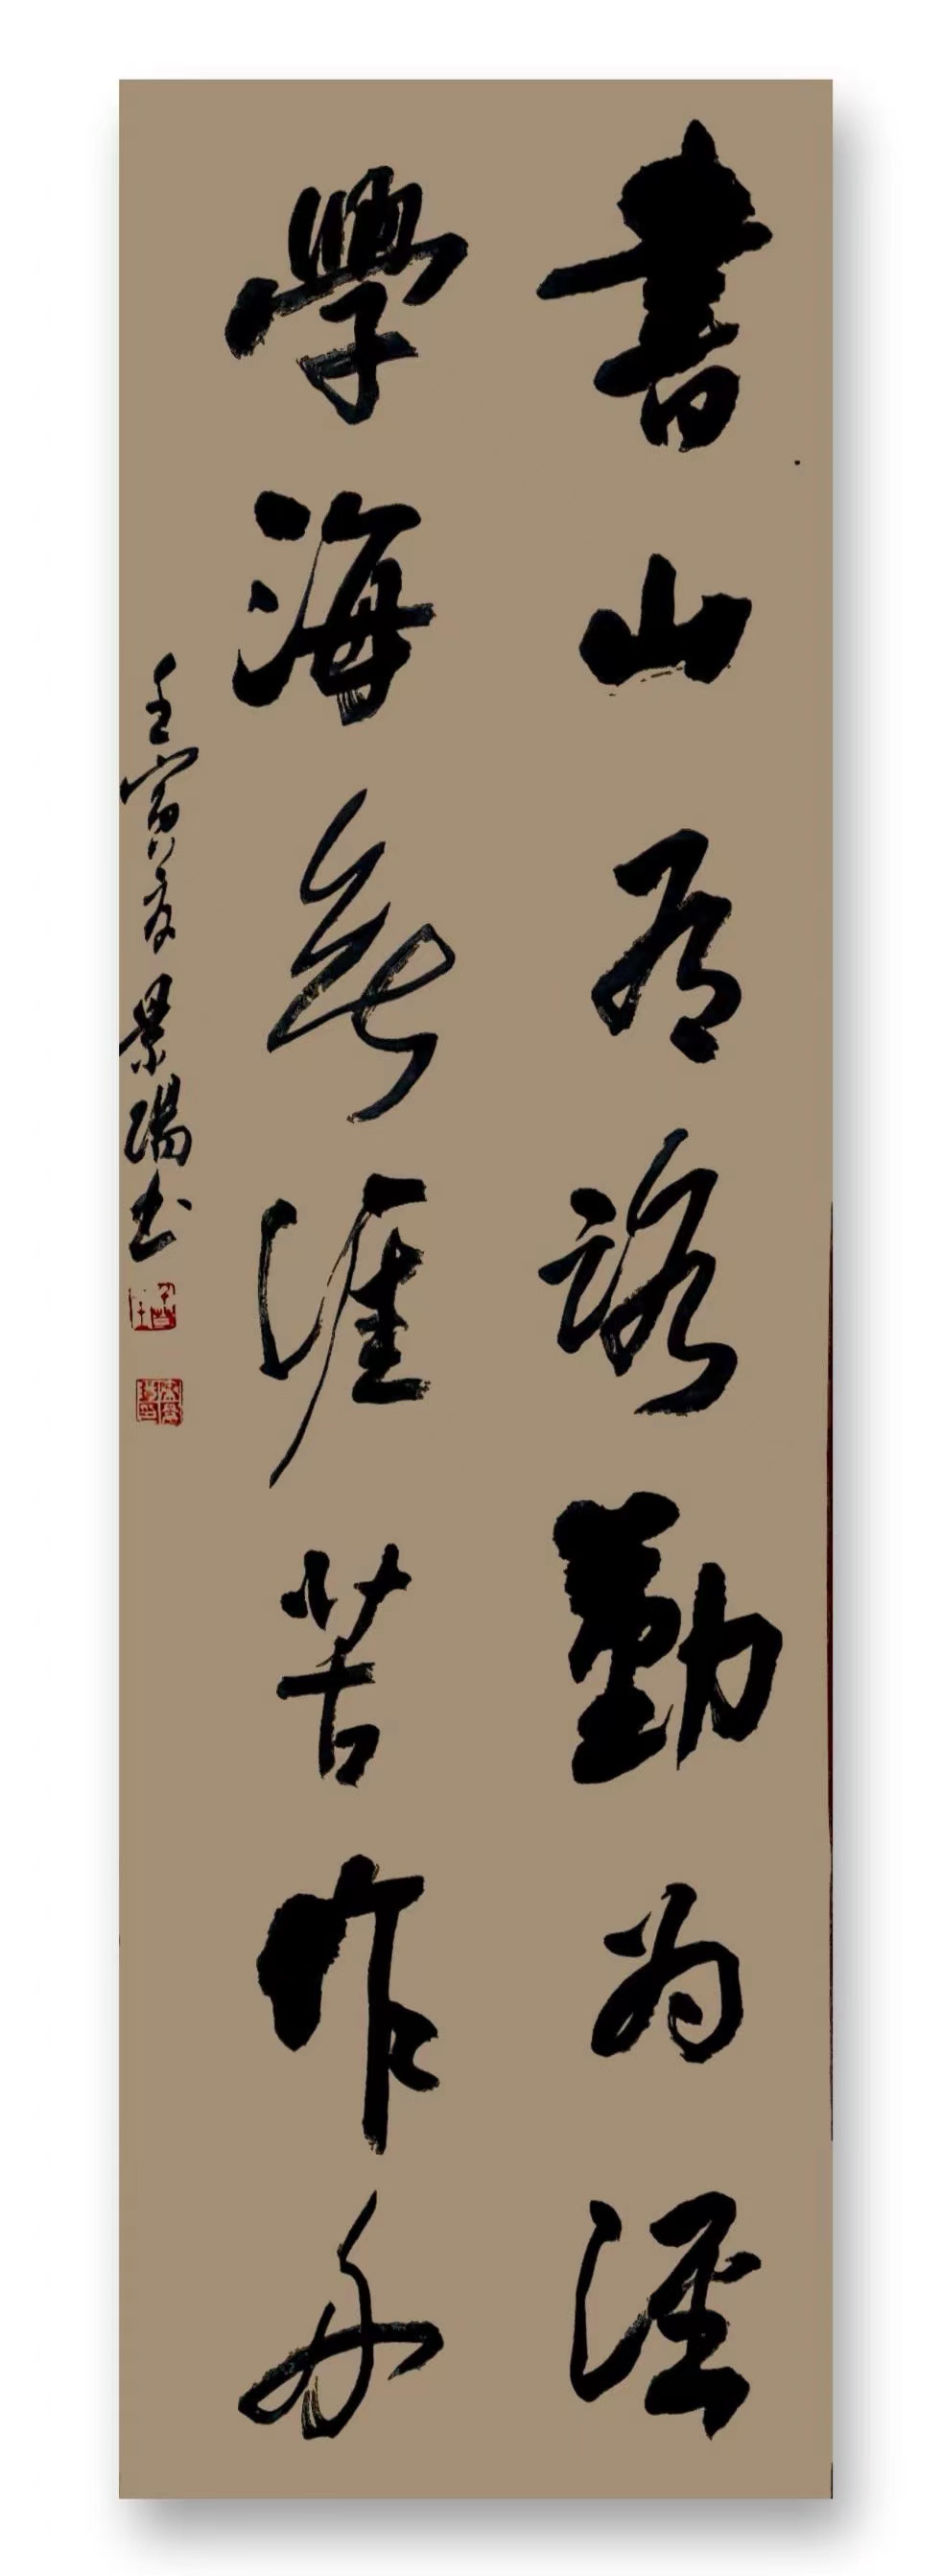 書山有路勤為徑
學海無涯苦作舟
壬寅夏景陽书